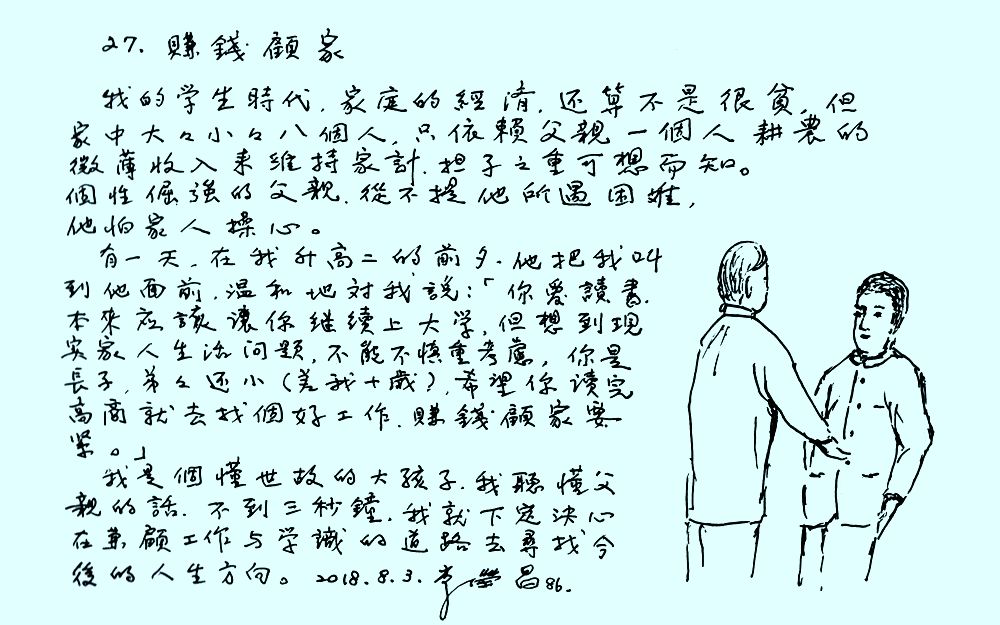 27. 賺錢顧家
我的学生時代，家庭的經済，还算不是很貧，但
家中大々小々八個人，只依賴父親一個人耕農的
微薄收入來維持家計，担子之重可想而知。
個性倔強的父親，從不提他所遇困难，
他怕家人操心。
有一天，在我升高二的前夕，他把我叫
到他面前，温和地对我說：「你爱讀書，
本來应該讓你继续上大学，但想到現
实家人生活问題，不能不慎重考慮，你是
長子，弟々还小（差我十歲），希望你读完
高商就去找個好工作，賺錢顧家要
紧。」
我是個懂世故的大孩子，我聽懂父
親的話，不到三秒鐘，我就下定決心
在兼顧工作与学識的道路去尋找今
後的人生方向。2018.8.3. 李 昌86.